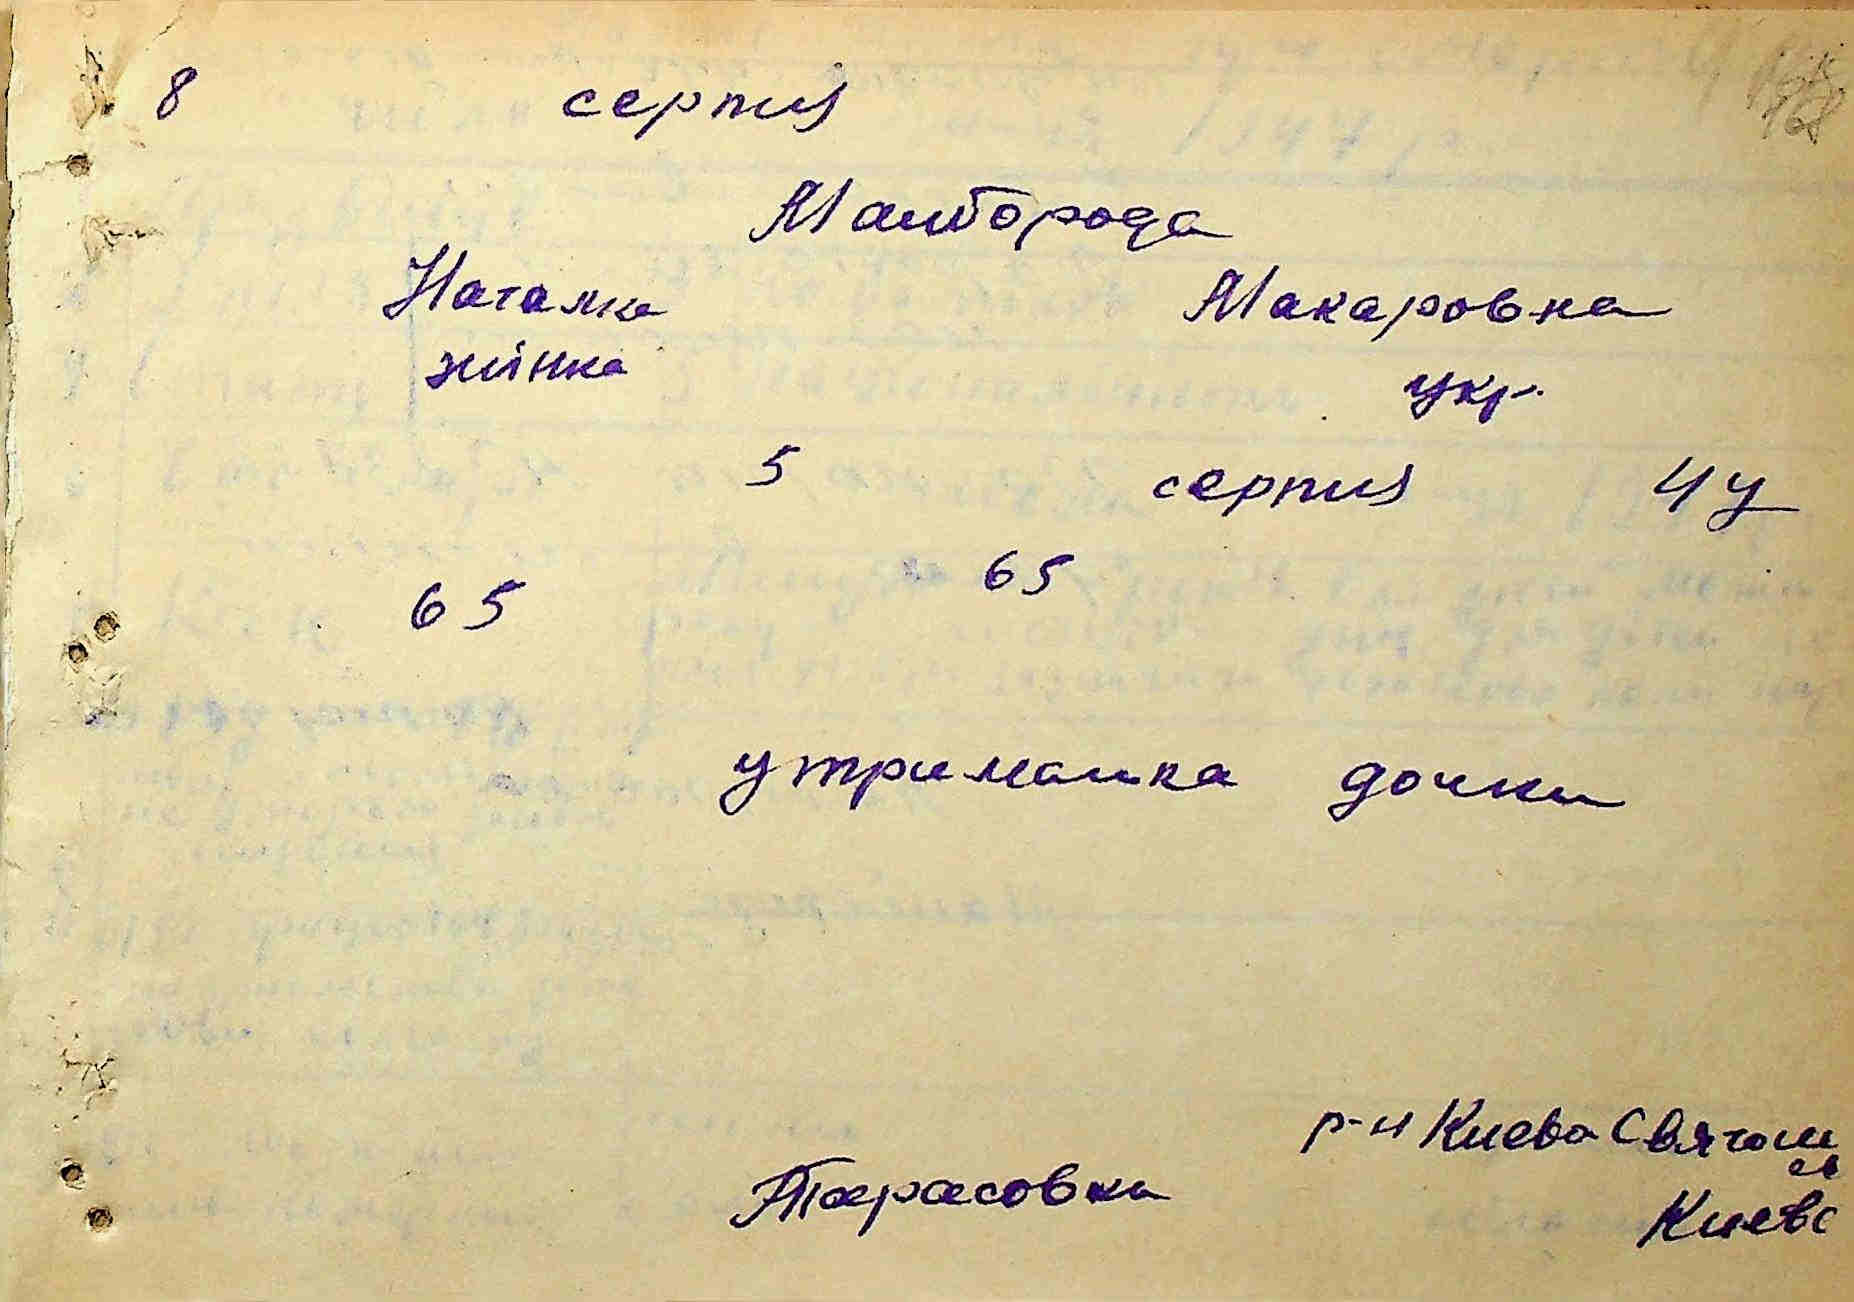 8 серпня
Майборода
Наталка Макаровна
жінка укр.
5 серпня 47
65
65
утриманка дочки
р-н Киево Святош
Тарасовка
Києвс